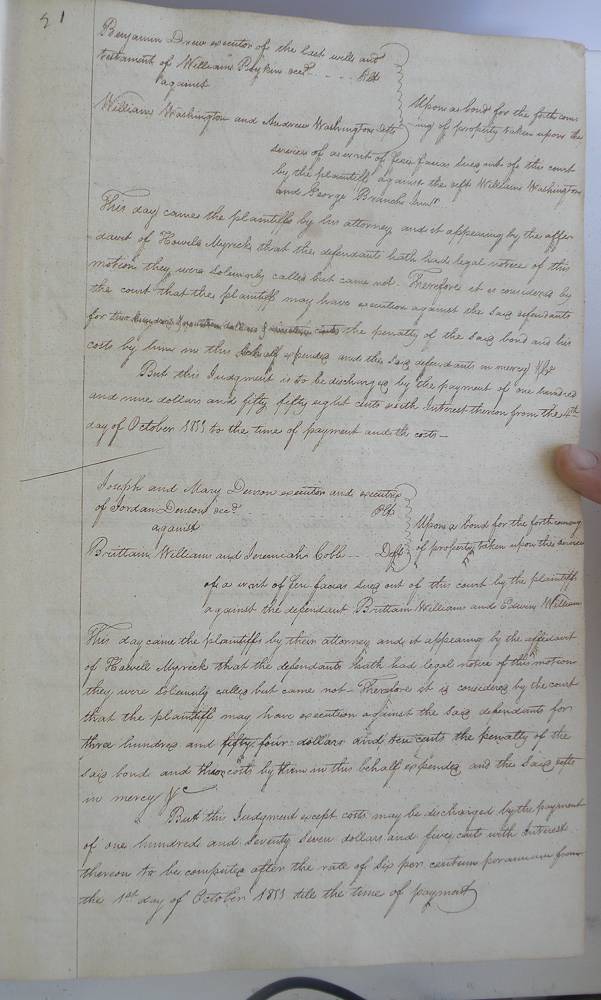 51
Benjamin Drew executor of the last will and
testament of William Boykin decd. - - - Plt
against
William Washington and Andrew Washington Defts
Upon a bond for the forth com
ing of property taken upon the
service of a writ of feri facias sued out of this court
by the plaintiff against the deft William Washington
and George Branch
This day came the plaintiffs by his attorney and it appearing by the affi
davit of Howell Myrick that the defendants hath had legal notice of this
motion they were solemnly called but came not. Therefore it is considered by
the court that the plaintiff may have execution against the said defendants
for two hundred & nineteen dollars & cents the penalty of the said bond and his
costs by him in this behalf expended and the said defendants in mercy &c
But this Judgment is to be discharged by the payment of one hundred
and nine dollars and fifty fifty eight cents with interest thereon from the 4th
day of October 1833 to the time of payment and the costs -
Joseph and Mary Denson executor and executrix
of Jordan Denson decd. Plts
against
Brittain Williams and Jeremiah Cobb - Defts
Upon a bond for the forthcoming
of property taken upon the service
of a writ of feri facias sued out of this court by the plaintiffs
against the defendant Brittain Williams and Edwin Williams
This day came the plaintiffs by their attorney and it appearing by the affidavit
of Howell Myrick that the defendants hath had legal notice of this motion
they were solemnly called but came not - Therefore it is considered by the court
that the plaintiff may have execution against the said defendants for
three hundred and fifty four dollars and ten cents the penalty of the
said bond and their costs by them in this behalf expended and the said defts
in mercy &c
But this Judgment except costs may be discharged by the payment
of one hundred and seventy seven dollars and five cents with interest
thereon to be computed after the rate of six per centum per annum from
the 1st day of October 1833 till the time of payment